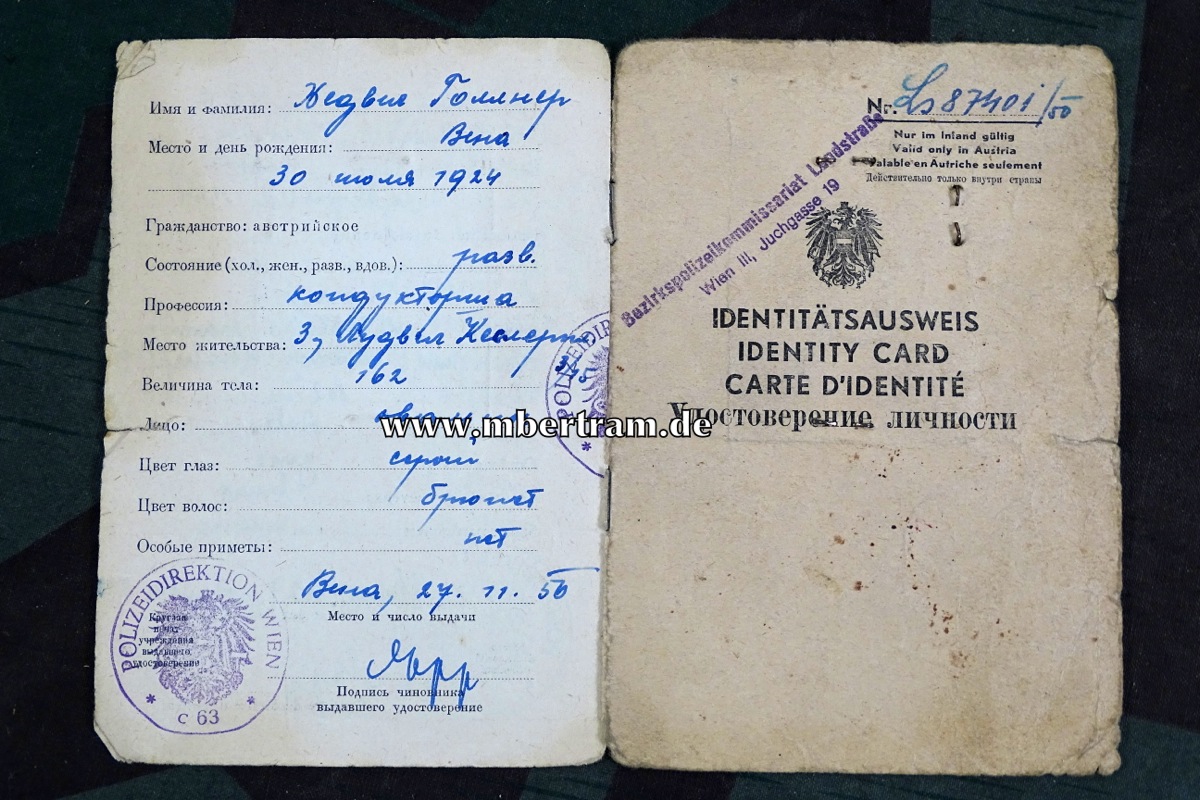 Имя и фамилия: Хедвиг Голлнер
Место и день рождения: Вена
30 июля 1924
Гражданство: австрийское
Состояние (хол., жен., разв., вдов.): разв.
Профессия: кондукторша
Место жительства: 3, Лудвиг
Величина тела: 162
Лицо:
Цвет глаз: серый
Цвет волос: брюнет
Особые приметы: нет
Вена, 27. 11. 50
Место и число выдачи
Круглая
печать
учреждения
выдавшего
удостоверение
POLIZEIDIREKTION WIEN
* C 63 *
Подпись чиновника
выдавшего удостоверение
Nr. Ls 87401/50
Nur im Inland gültig
Valid only in Austria
Valable en Autriche seulement
Действительно только внутри страны
Bezirkspolizeikommissariat Landstraße
Wien III, Juchgasse 19
IDENTITÄTSAUSWEIS
IDENTITY CARD
CARTE D'IDENTITÉ
Удостоверение личности
www.mbertram.de